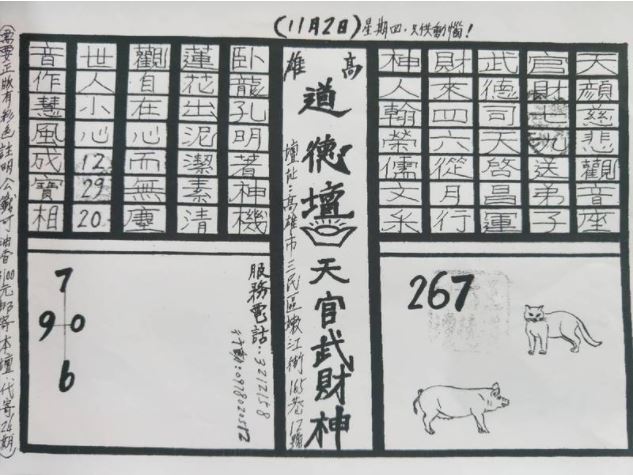 (11月2日)星期四.只供動惱!
天顏慈悲觀音座
官財 送弟子
武德司天啓昌運
財來四六從月行
神人翰榮儒文采
267
高雄
道德壇
天官武財神
壇址:高雄市三民區嫩江街165巷12號
臥龍孔明著神機
蓮花出泥潔素清
觀自在心而無塵
世人小心12 29 20.
音作慧風成寶相
服務電話:3212158
7
9 0
6
(需要正版有彩色註明 油香 100元郵寄本壇.代寄26期)